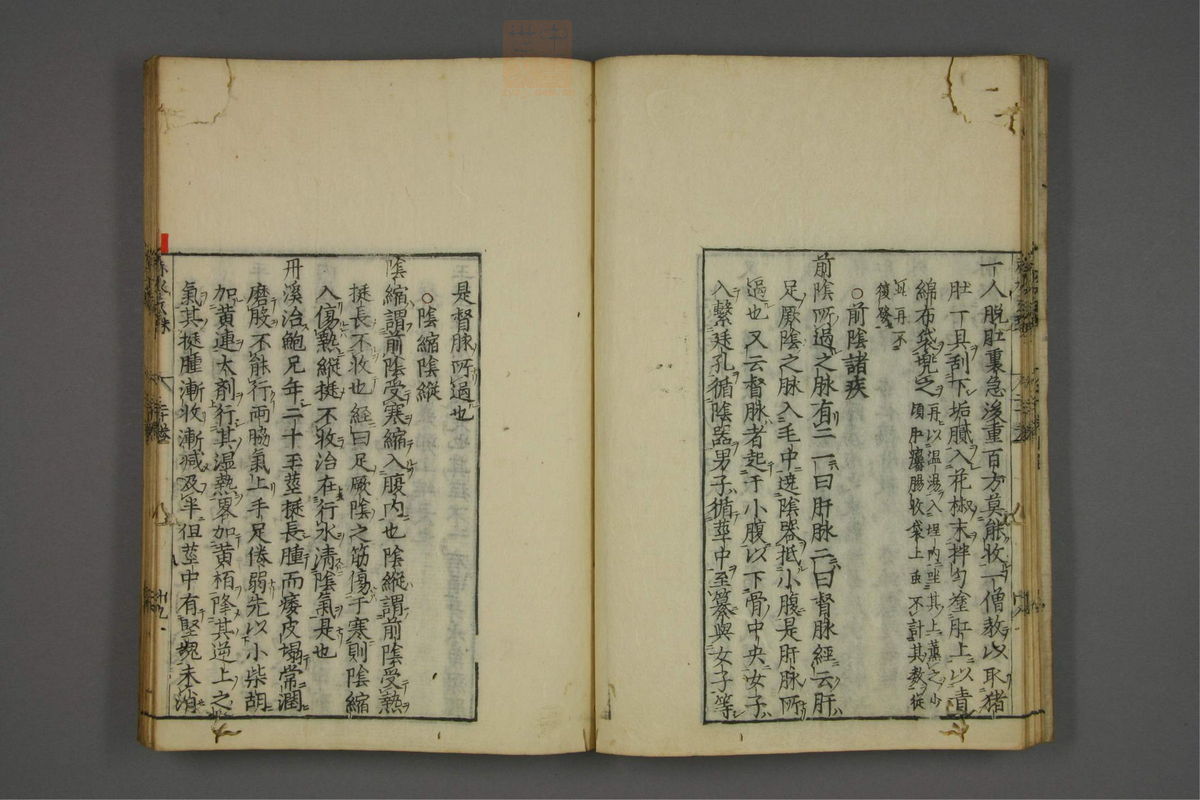 一人脱肛裏急後重百方莫能收一僧教以取猪
肚一具刮下垢膩入花椒末拌勻塗肛上以青
綿布袋兜之再以温湯入埕内坐其上薫之少
頃肛癢腸收袋上虫不計其数從
此再不
復發
○前陰諸疾
前陰所過之脉有二一曰肝脉二曰督脉經云肝
足厥陰之脉入毛中遶陰器抵小腹是肝脉所
過也又云督脉者起于小腹以下骨中央女子
入繫廷孔循陰器男子循莖中至簒與女子等
是督脉所過也
○陰縮陰縱
陰縮謂前陰受寒縮入腹内也陰縱謂前陰受熱
挺長不收也經曰足厥陰之筋傷于寒則陰縮
入傷熱縱挺不收治在行水清陰氣是也
丹溪治鮑兄年二十玉莖挺長腫而痿皮塌常潤
磨股不能行両脇氣上手足倦弱先以小柴胡
加黄連大剤行其湿熱畧加黄栢降其逆上之
氣其挺腫漸收漸减及半但莖中有堅塊未消